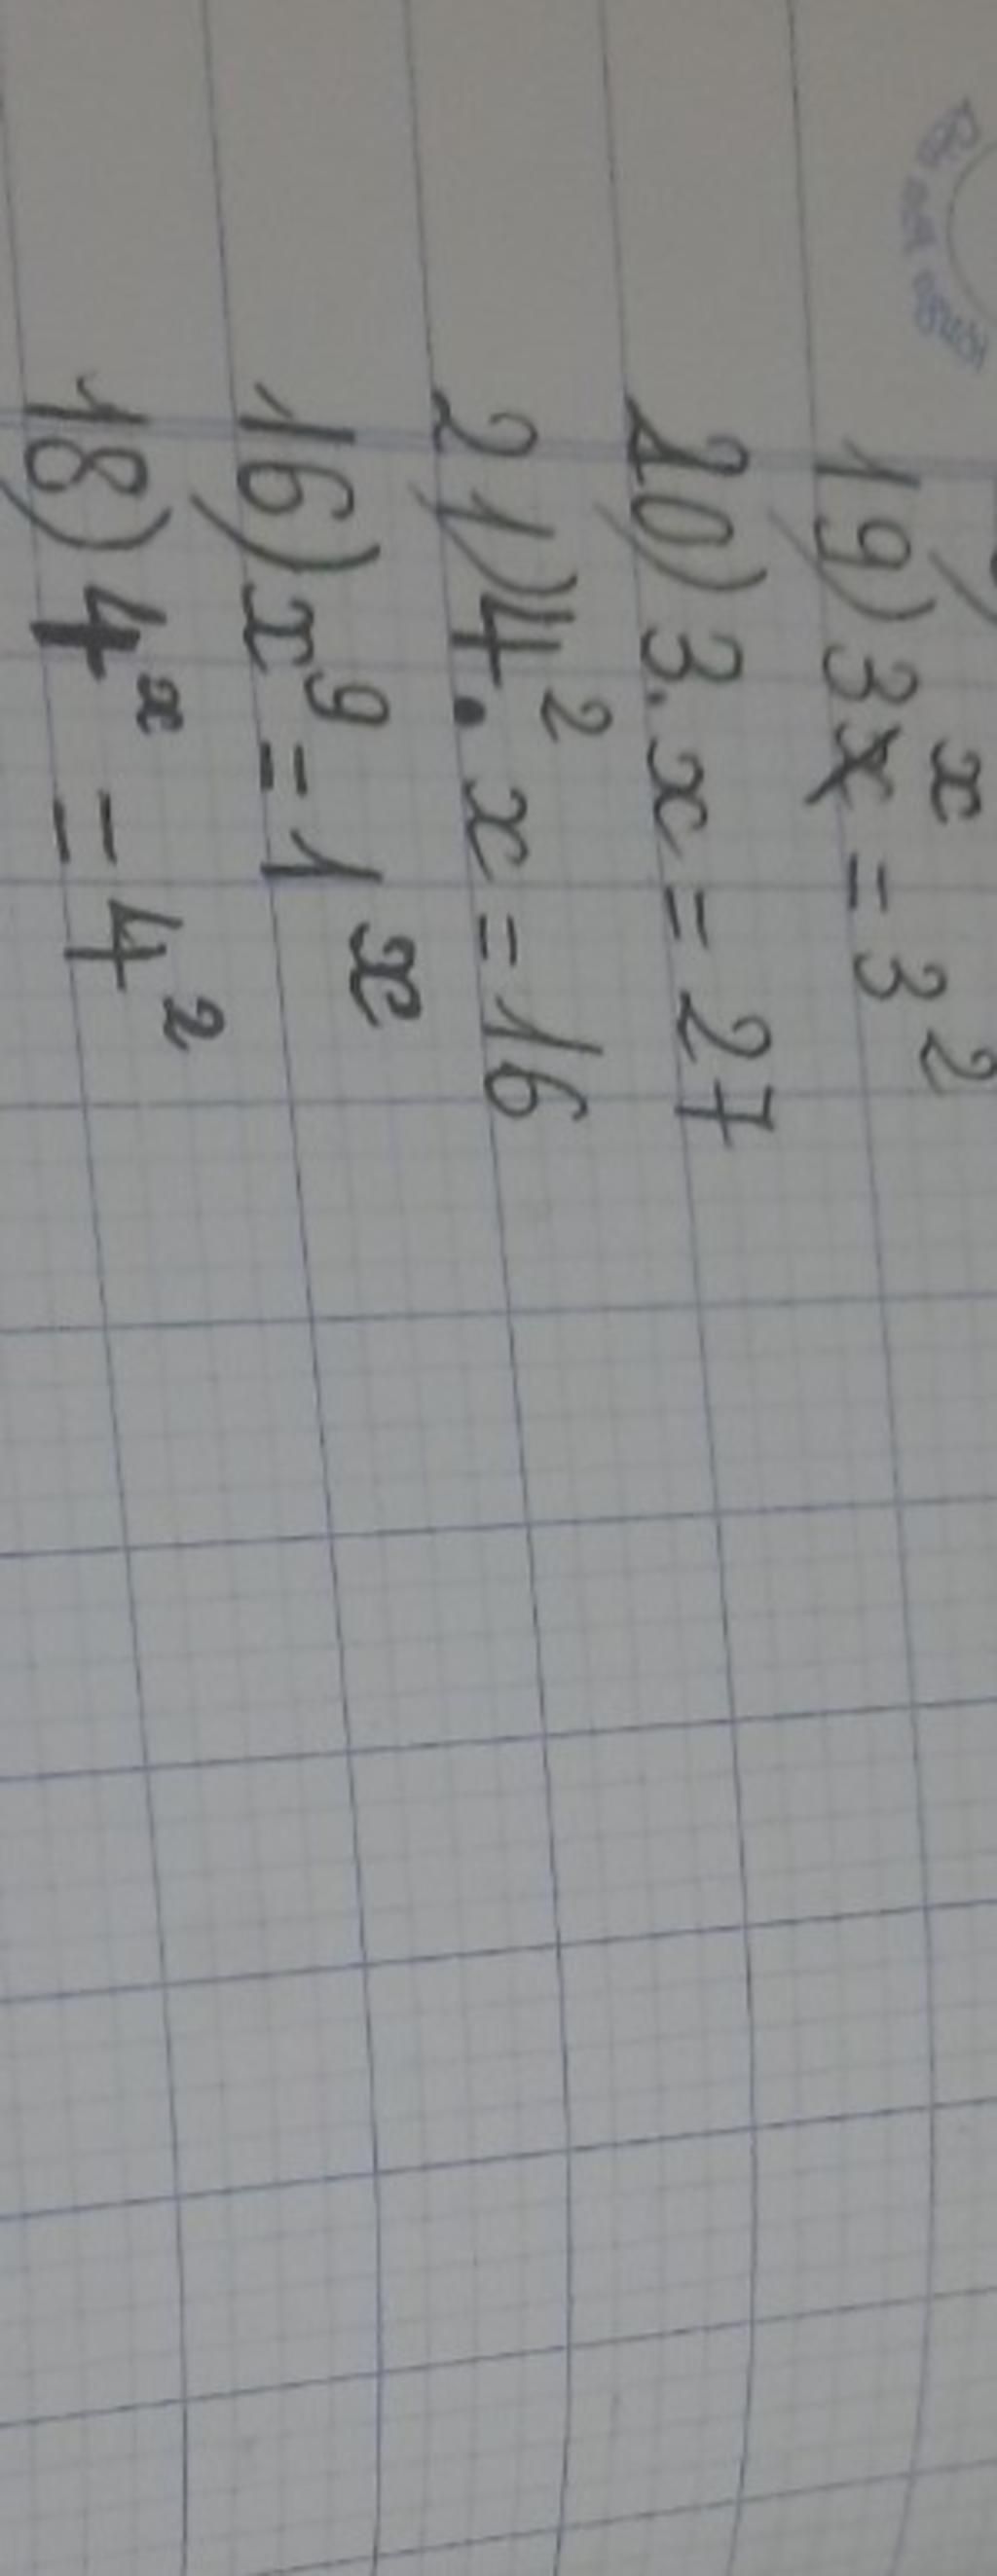 19) 3ˣ = 3²
20) 3.x = 27
21) 4².x = 16
16) x⁹ = 1ˣ
18) 4ˣ = 4²